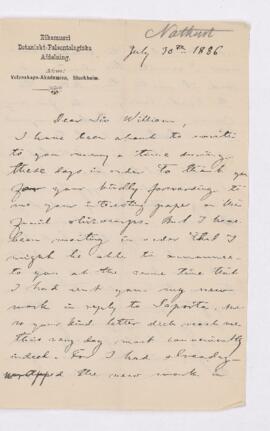 Riksmusei
Botaniskt-Paleontologiska
Afdelning.
Adress:
Vetenskaps-Akademien, Stockholm.
Nathorst
July 30th 1886
Dear Sir William,
I have been about to write
to you many a time during
these days in order to thank you
for your kindly forwarding to
me your interesting paper on the
fossil rhizocarps. But I have
been waiting in order that I
might be able to announce
to you at the same time that
I had sent you my new
work in reply to Saporta, and
so your kind letter did reach me
this very day most conveniently
indeed. For I had already
the new work in